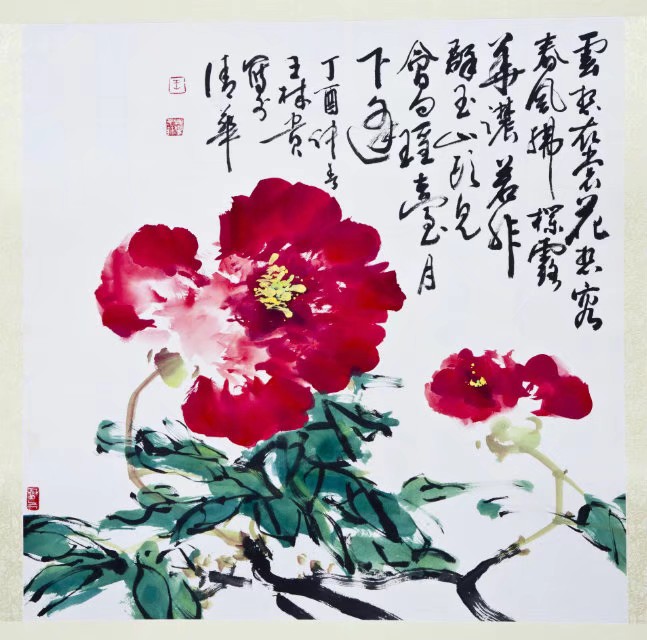 雲想衣裳花想容
春風拂檻露
華濃若非
群玉山頭見
會向瑤臺月
下逢
丁酉仲春
王林貴
寫於
清華